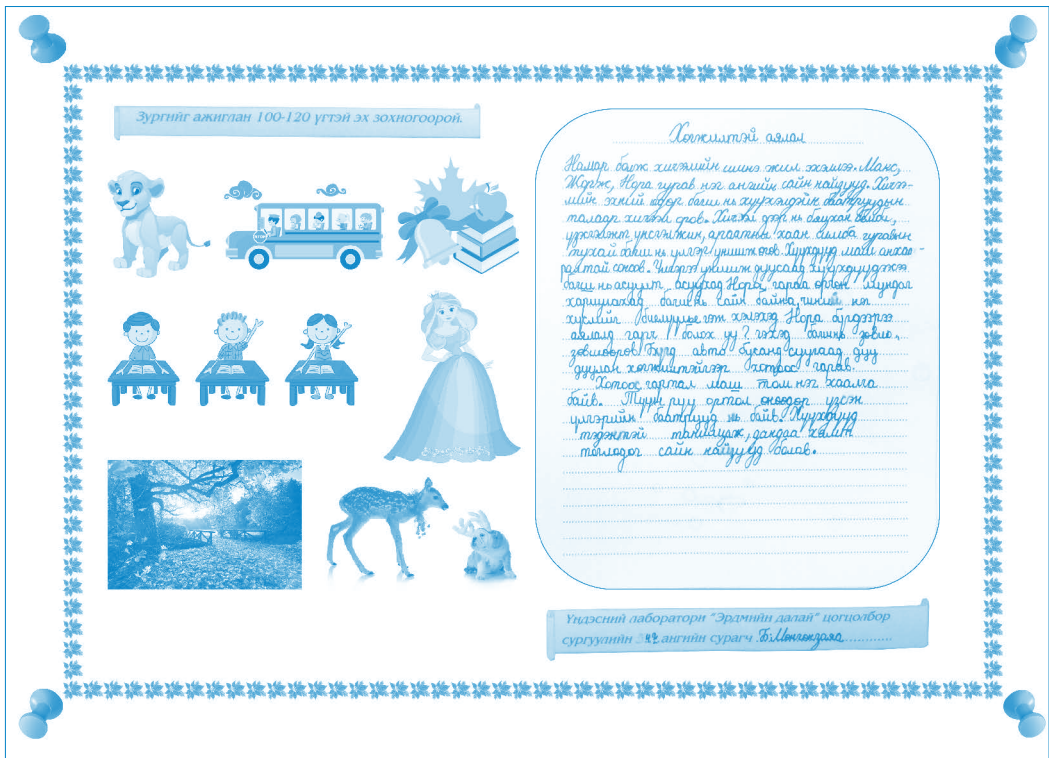 Зургийг ажиглан 100-120 үгтэй эх зохиогоорой.
Хөгжилтэй аялал
Намар болж хичээлийн шинэ жил эхэллээ. Макс,
Жорж, Нора гурав нэг ангийн сайн найзууд. Хичээ-
лийн эхний өдөр багш нь хүүхэлдэйн баатруудын
талаар хичээл оров. Хичээл дээр нь бяцхан Бемби,
үзэсгэлэнт үнсгэлжин, араатны хаан симба гурвын
тухай багш нь үлгэр уншиж өгөв. Хүүхдүүд маш анхаа-
ралтай сонсов. Үлгэрээ уншиж дуусаад хүүхдүүдээсээ
багш нь асуулт асуухад Нора гараа өргөн мундаг
хариулахад багш нь сайн байна, чиний нэг
хүслийг биелүүлье гэж хэлэхэд Нора бүгдээрээ
аялалд гарч болох уу? гэхэд багш нь зөвшө,
зөвшөөрөв. Бүгд авто бусанд суугаад дуу
дуулан хөгжилтэйгээр хотоос гарав.
Хотоос гартал маш том нэг хаалга
байв. Түүн рүү ортол өнөөдөр үзсэн
үлгэрийн баатрууд нь байв. Хүүхдүүд
тэдэнтэй танилцаж, дандаа хамт
тоглодог сайн найзууд болов.
Үндэсний лаборатори "Эрдмийн далай" цогцолбор
сургуулийн 4 ангийн сурагч Б.Мөнгөнзаяа